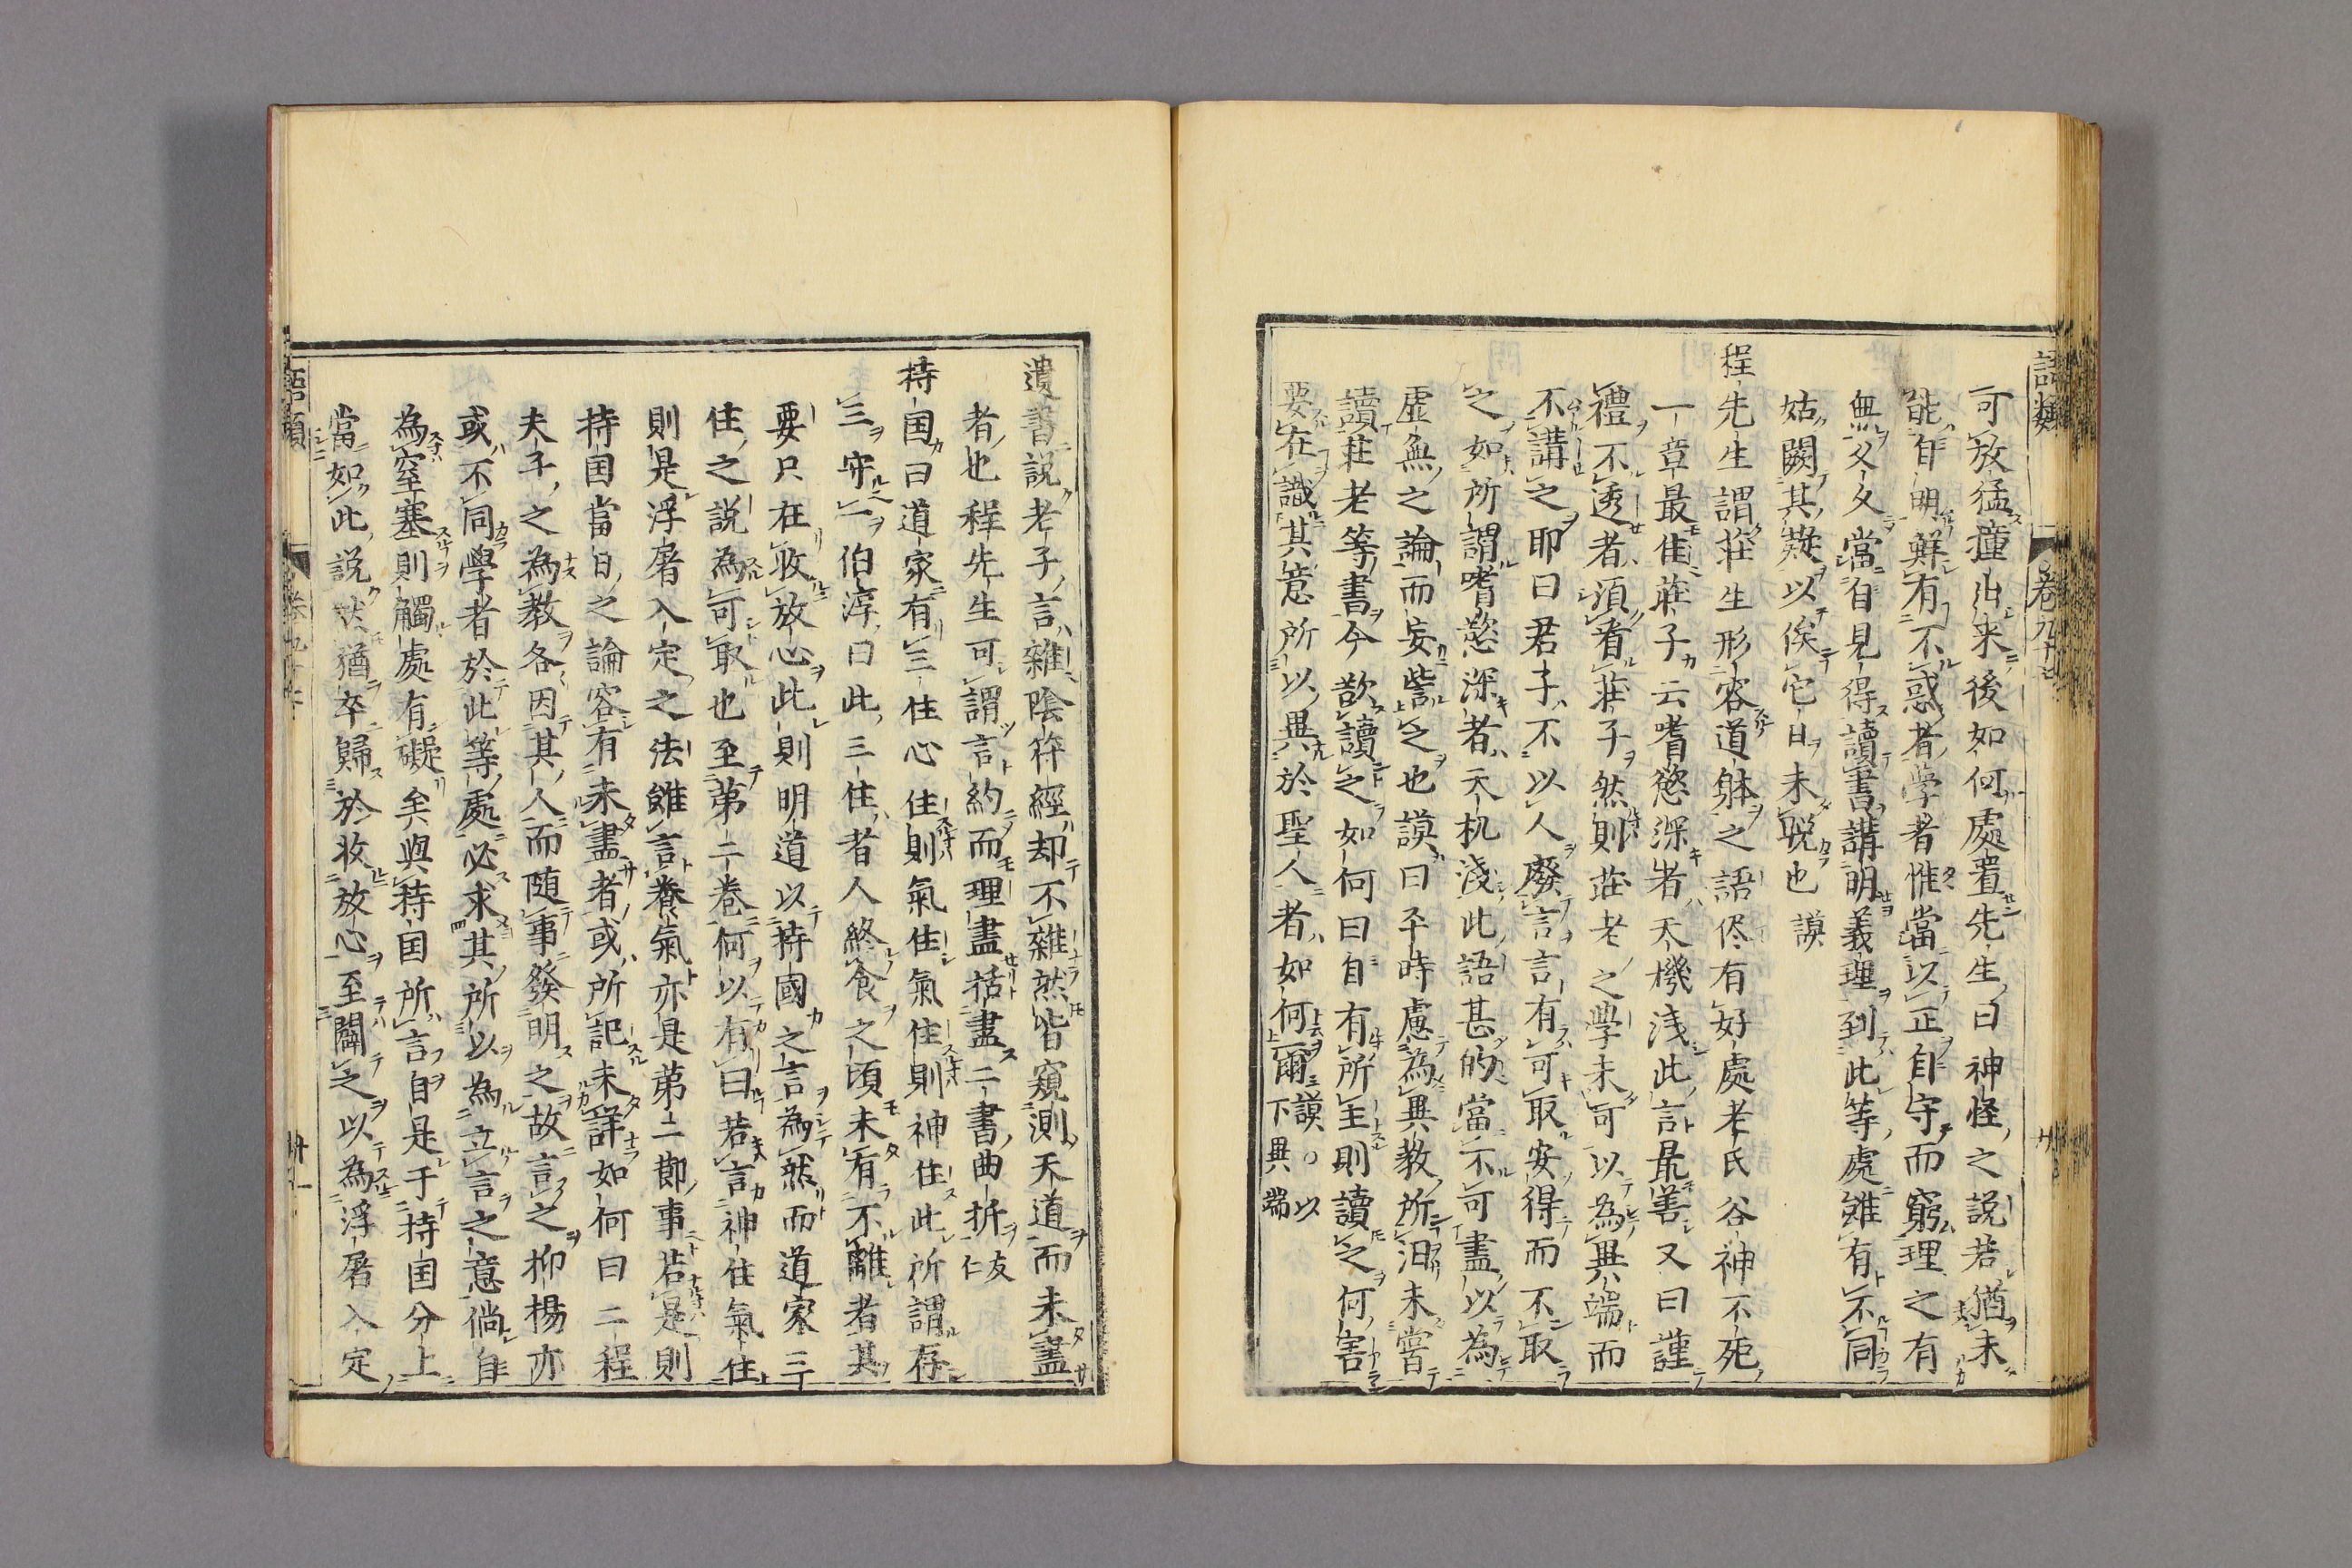 語類 卷九十七 廿
可放猛撞出来後如何處置先生曰神怪之説若猶未
能自明鮮有不惑者學者惟當以正自守而窮理之有
無久久當自見得讀書講明義理到此等處雖有不同
姑闕其疑以俟它日未晩也 謨
程先生謂莊生形容道躰之語侭有好處老氏谷神不死
一章最佳莊子云嗜慾深者天機浅此言最善又曰謹
禮不透者湏看莊子然則莊老之學未可以為異端而
不講之耶曰君子不以人廢言言有可取安得而不取
之如所謂嗜慾深者天机淺此語甚的當不可盡以為
虚無之論而妄訾之也謨曰平時慮為異教所汨未嘗
讀莊老等書今欲讀之如何曰自有所主則讀之何害
要在識其意所以異於聖人者如何爾 謨○以下異端
遺書説老子言雜陰符經却不雜然皆窺測天道而未盡
者也程先生可謂言約而理盡括盡二書曲折 友仁
持国曰道家有三住心住則氣住氣住則神住此所謂存
三守一伯淳曰此三住者人終食之頃未有不離者其
要只在收放心此則明道以持國之言為然而道家三
住之説為可取也至第二卷何以有曰若言神住氣住
則是浮屠入定之法雖言養氣亦是第二節事若是則
持国當日之論容有未盡者或所記未詳如何曰二程
夫子之為教各因其人而随事發明之故言之抑揚亦
或不同學者於此等處必求其所以為立言之意倘自
為窒塞則觸處有礙矣與持国所言自是于持国分上
當如此説然猶卒歸於收放心至闢之以為浮屠入定
語類 卷九十七 廿一